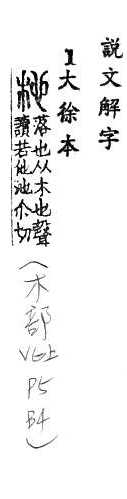 説文解字
1大徐本
杝 落也从木也聲
讀若他池尒切
(木部 V6上 P5 B4)